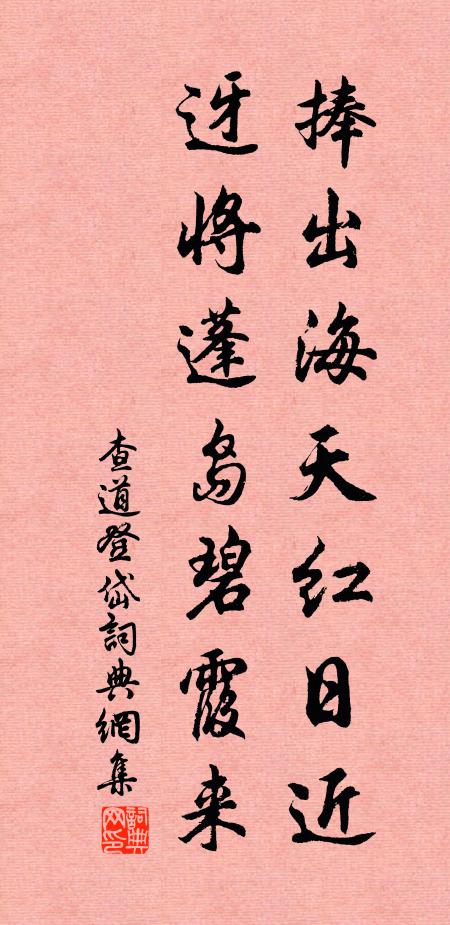 捧出海天红日近
迓将蓬岛碧霞来
查道登岱詞典網集
詞典网印